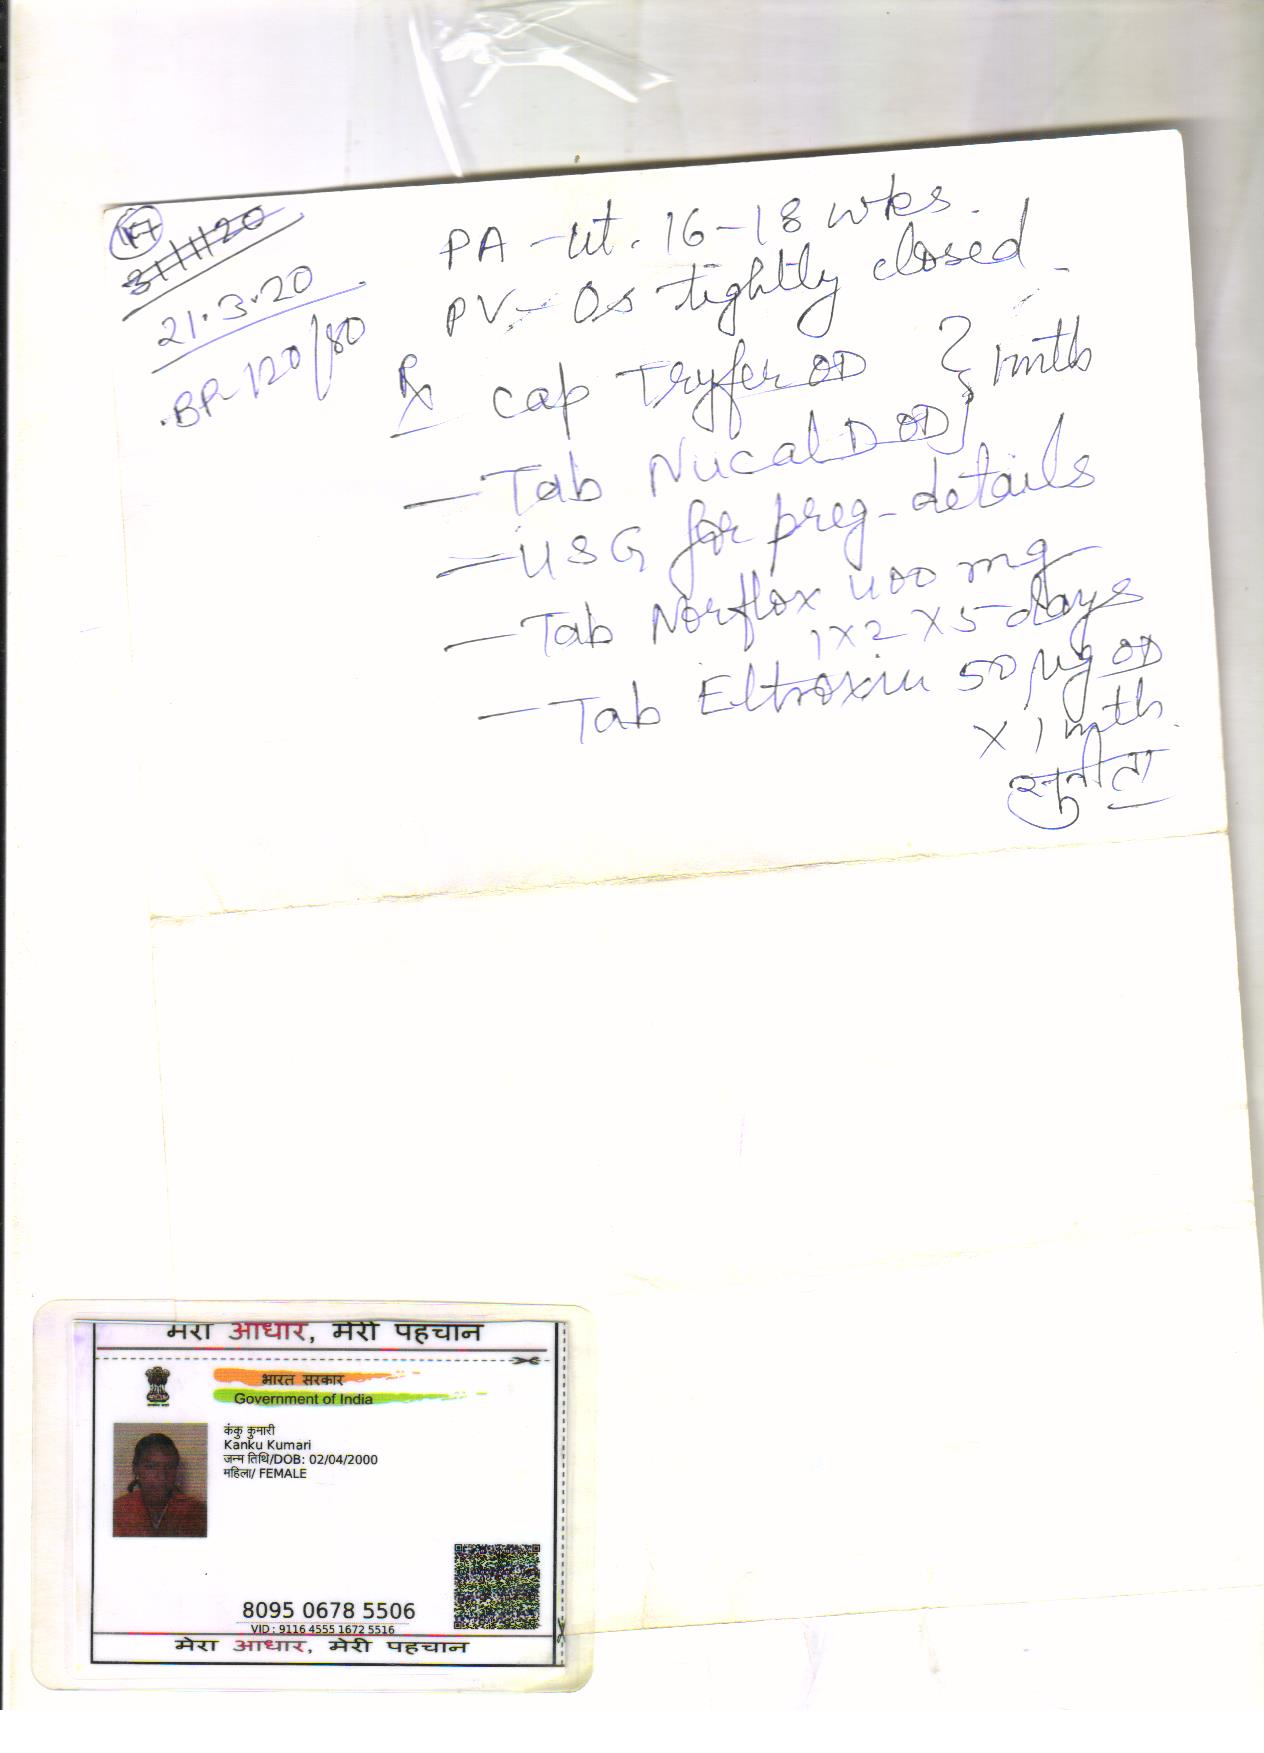 17
31/1/20
21.3.20
BP-120/80
PA - ut. 16-18 wks.
PV - Os tightly closed.
Rx Cap Tryfer OD } 1 mth
- Tab Nucal D OD }
- USG for preg-details
- Tab Norflox 400 mg
1x2x5 days
- Tab Eltroxin 50 µg OD
x 1 mth.
सुनीता
मेरा आधार, मेरी पहचान
भारत सरकार
Government of India
कंकु कुमारी
Kanku Kumari
जन्म तिथि/DOB: 02/04/2000
महिला/ FEMALE
8095 0678 5506
VID : 9116 4555 1672 5516
मेरा आधार, मेरी पहचान